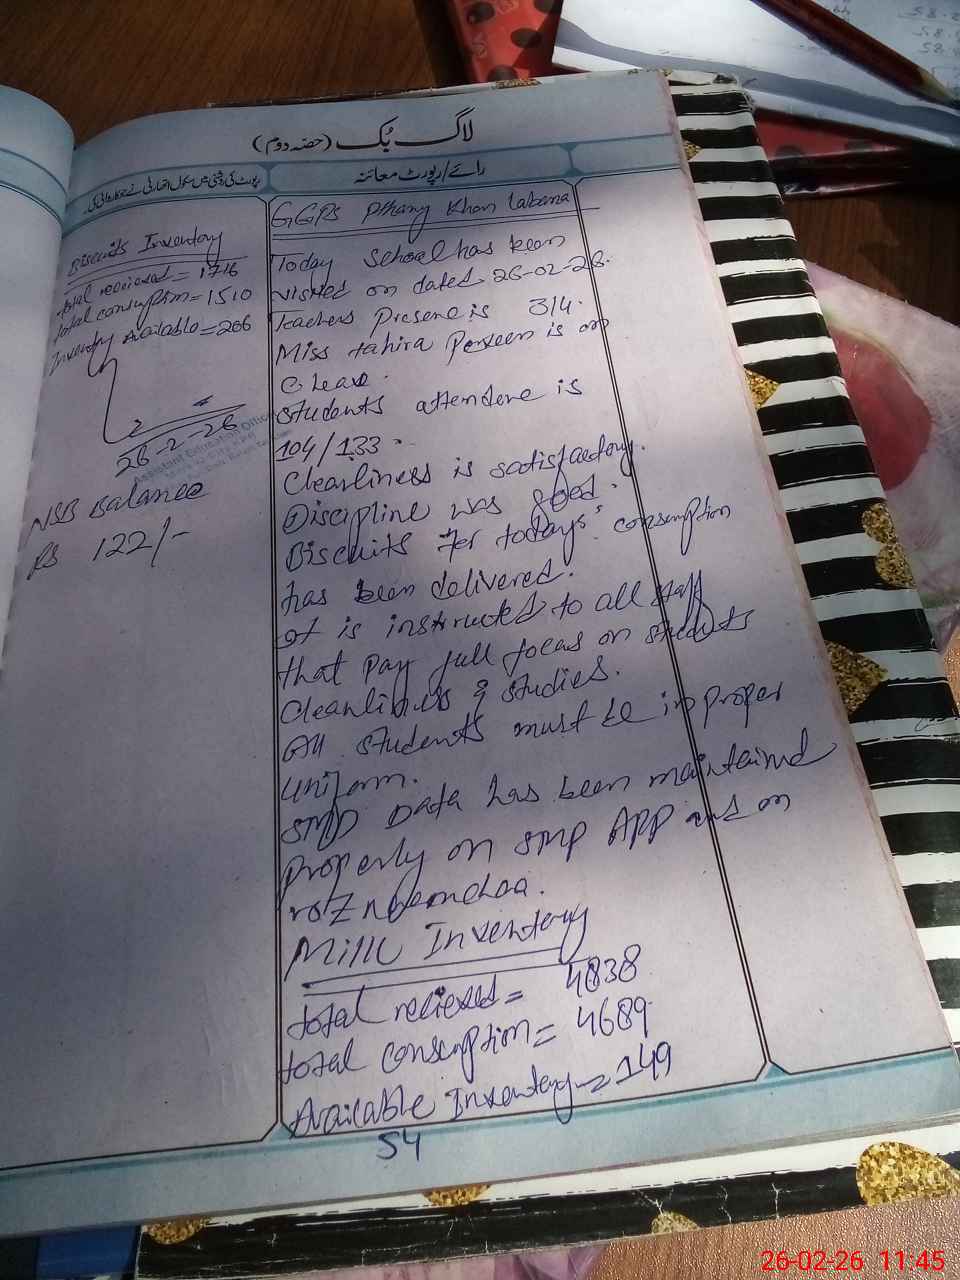 لاگ بک (حصہ دوم)
رائے/رپورٹ معائنہ
رپورٹ کی روشنی میں سکول اتھارٹی نے جو کارروائی کی۔
GGPS Pthany Khan Labana
Today school has been
visited on dated 26-02-26.
Teachers Presene is 3/4.
Miss tahira Perveen is on
C. Leave.
Students attendene is
104/133.
Clearliness is satisfactory.
Discipline was good.
Biscuits for todays' consmption
has been delivered.
It is instructed to all staff
that pay full focus on students
Cleanliness & studies.
All students must be in proper
uniform.
SMP Data has been maintained
Properly on SMP APP and on
roznamchaa.
Milk Inventory
total recieved = 4838
total consumption = 4689
Available Inventory = 149
54
Biscuits Inventory
total recieved = 1716
total consumption = 1510
Inventory Available = 206
26-2-26
Assistant Education Officer
NSB Balance
Rs 122/-
58.
58.
26-02-26 11:45